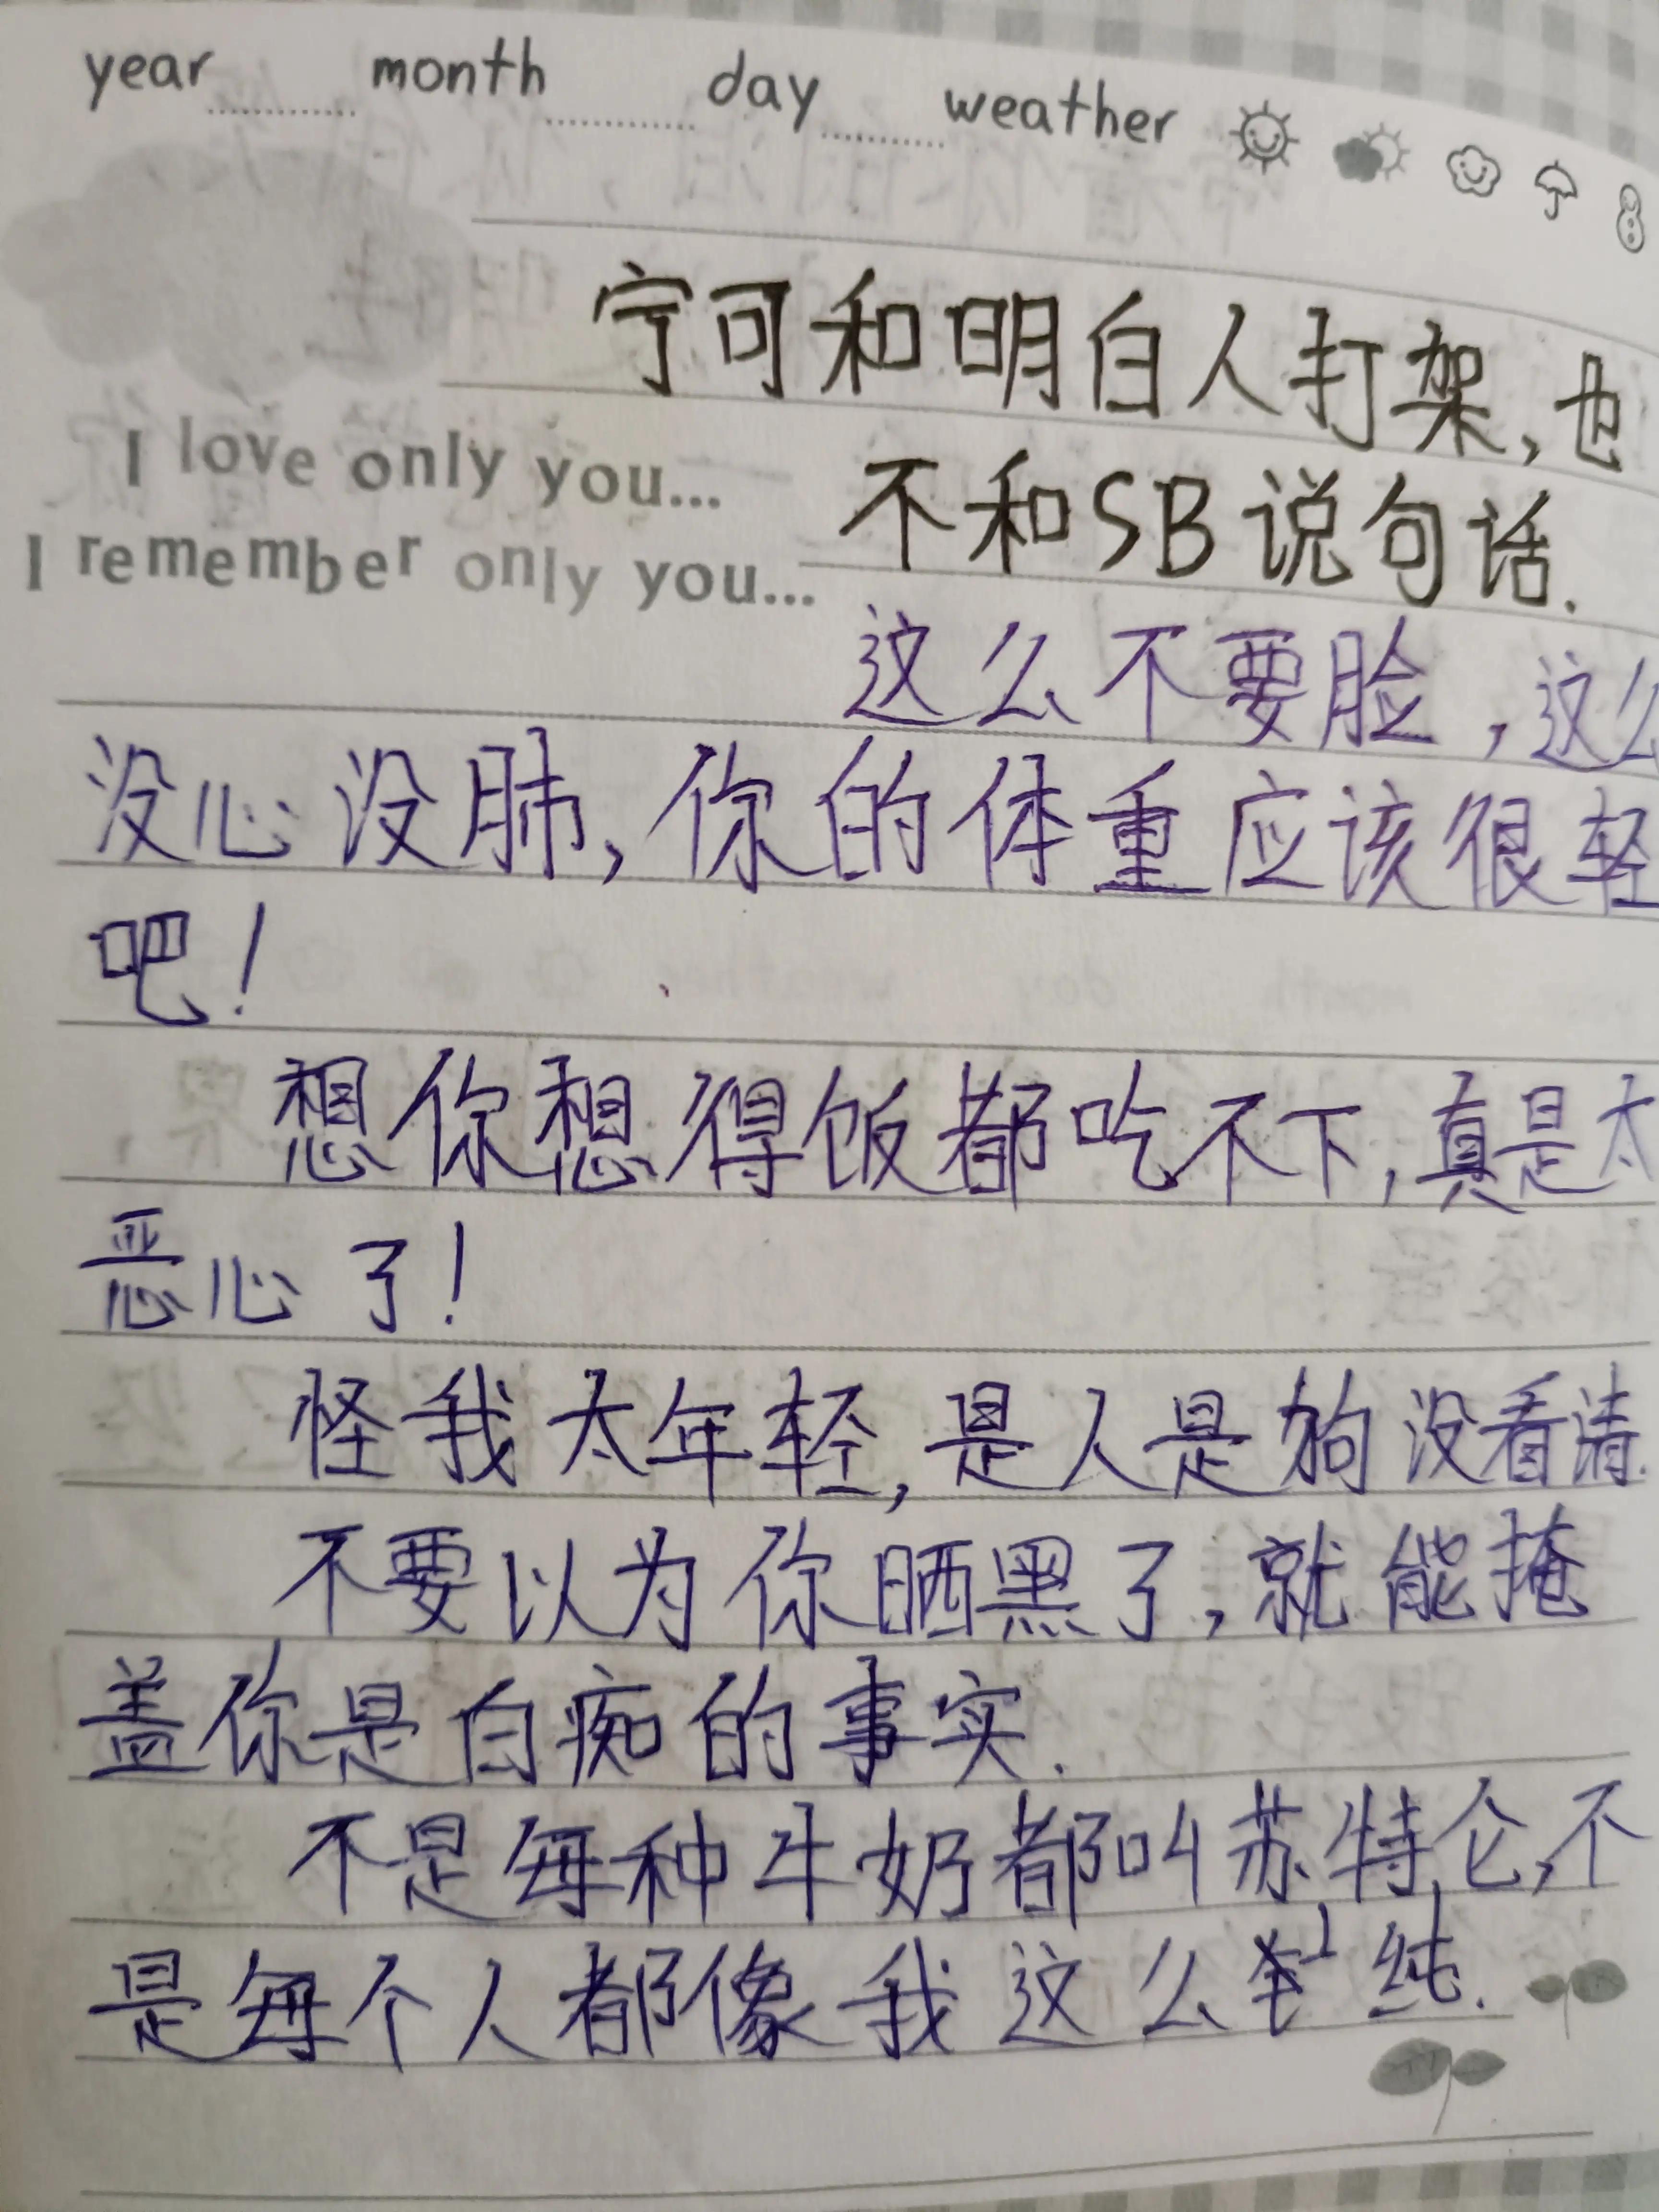 year month day weather
宁可和明白人打架,也
不和SB说句话.
I love only you...
I remember only you...
这么不要脸,这么
没心没肺,你的体重应该很轻
吧!
想你想得饭都吃不下,真是太
恶心了!
怪我太年轻,是人是狗没看清.
不要以为你晒黑了,就能掩
盖你是白痴的事实.
不是每种牛奶都叫苏特仑,不
是每个人都像我这么纯.